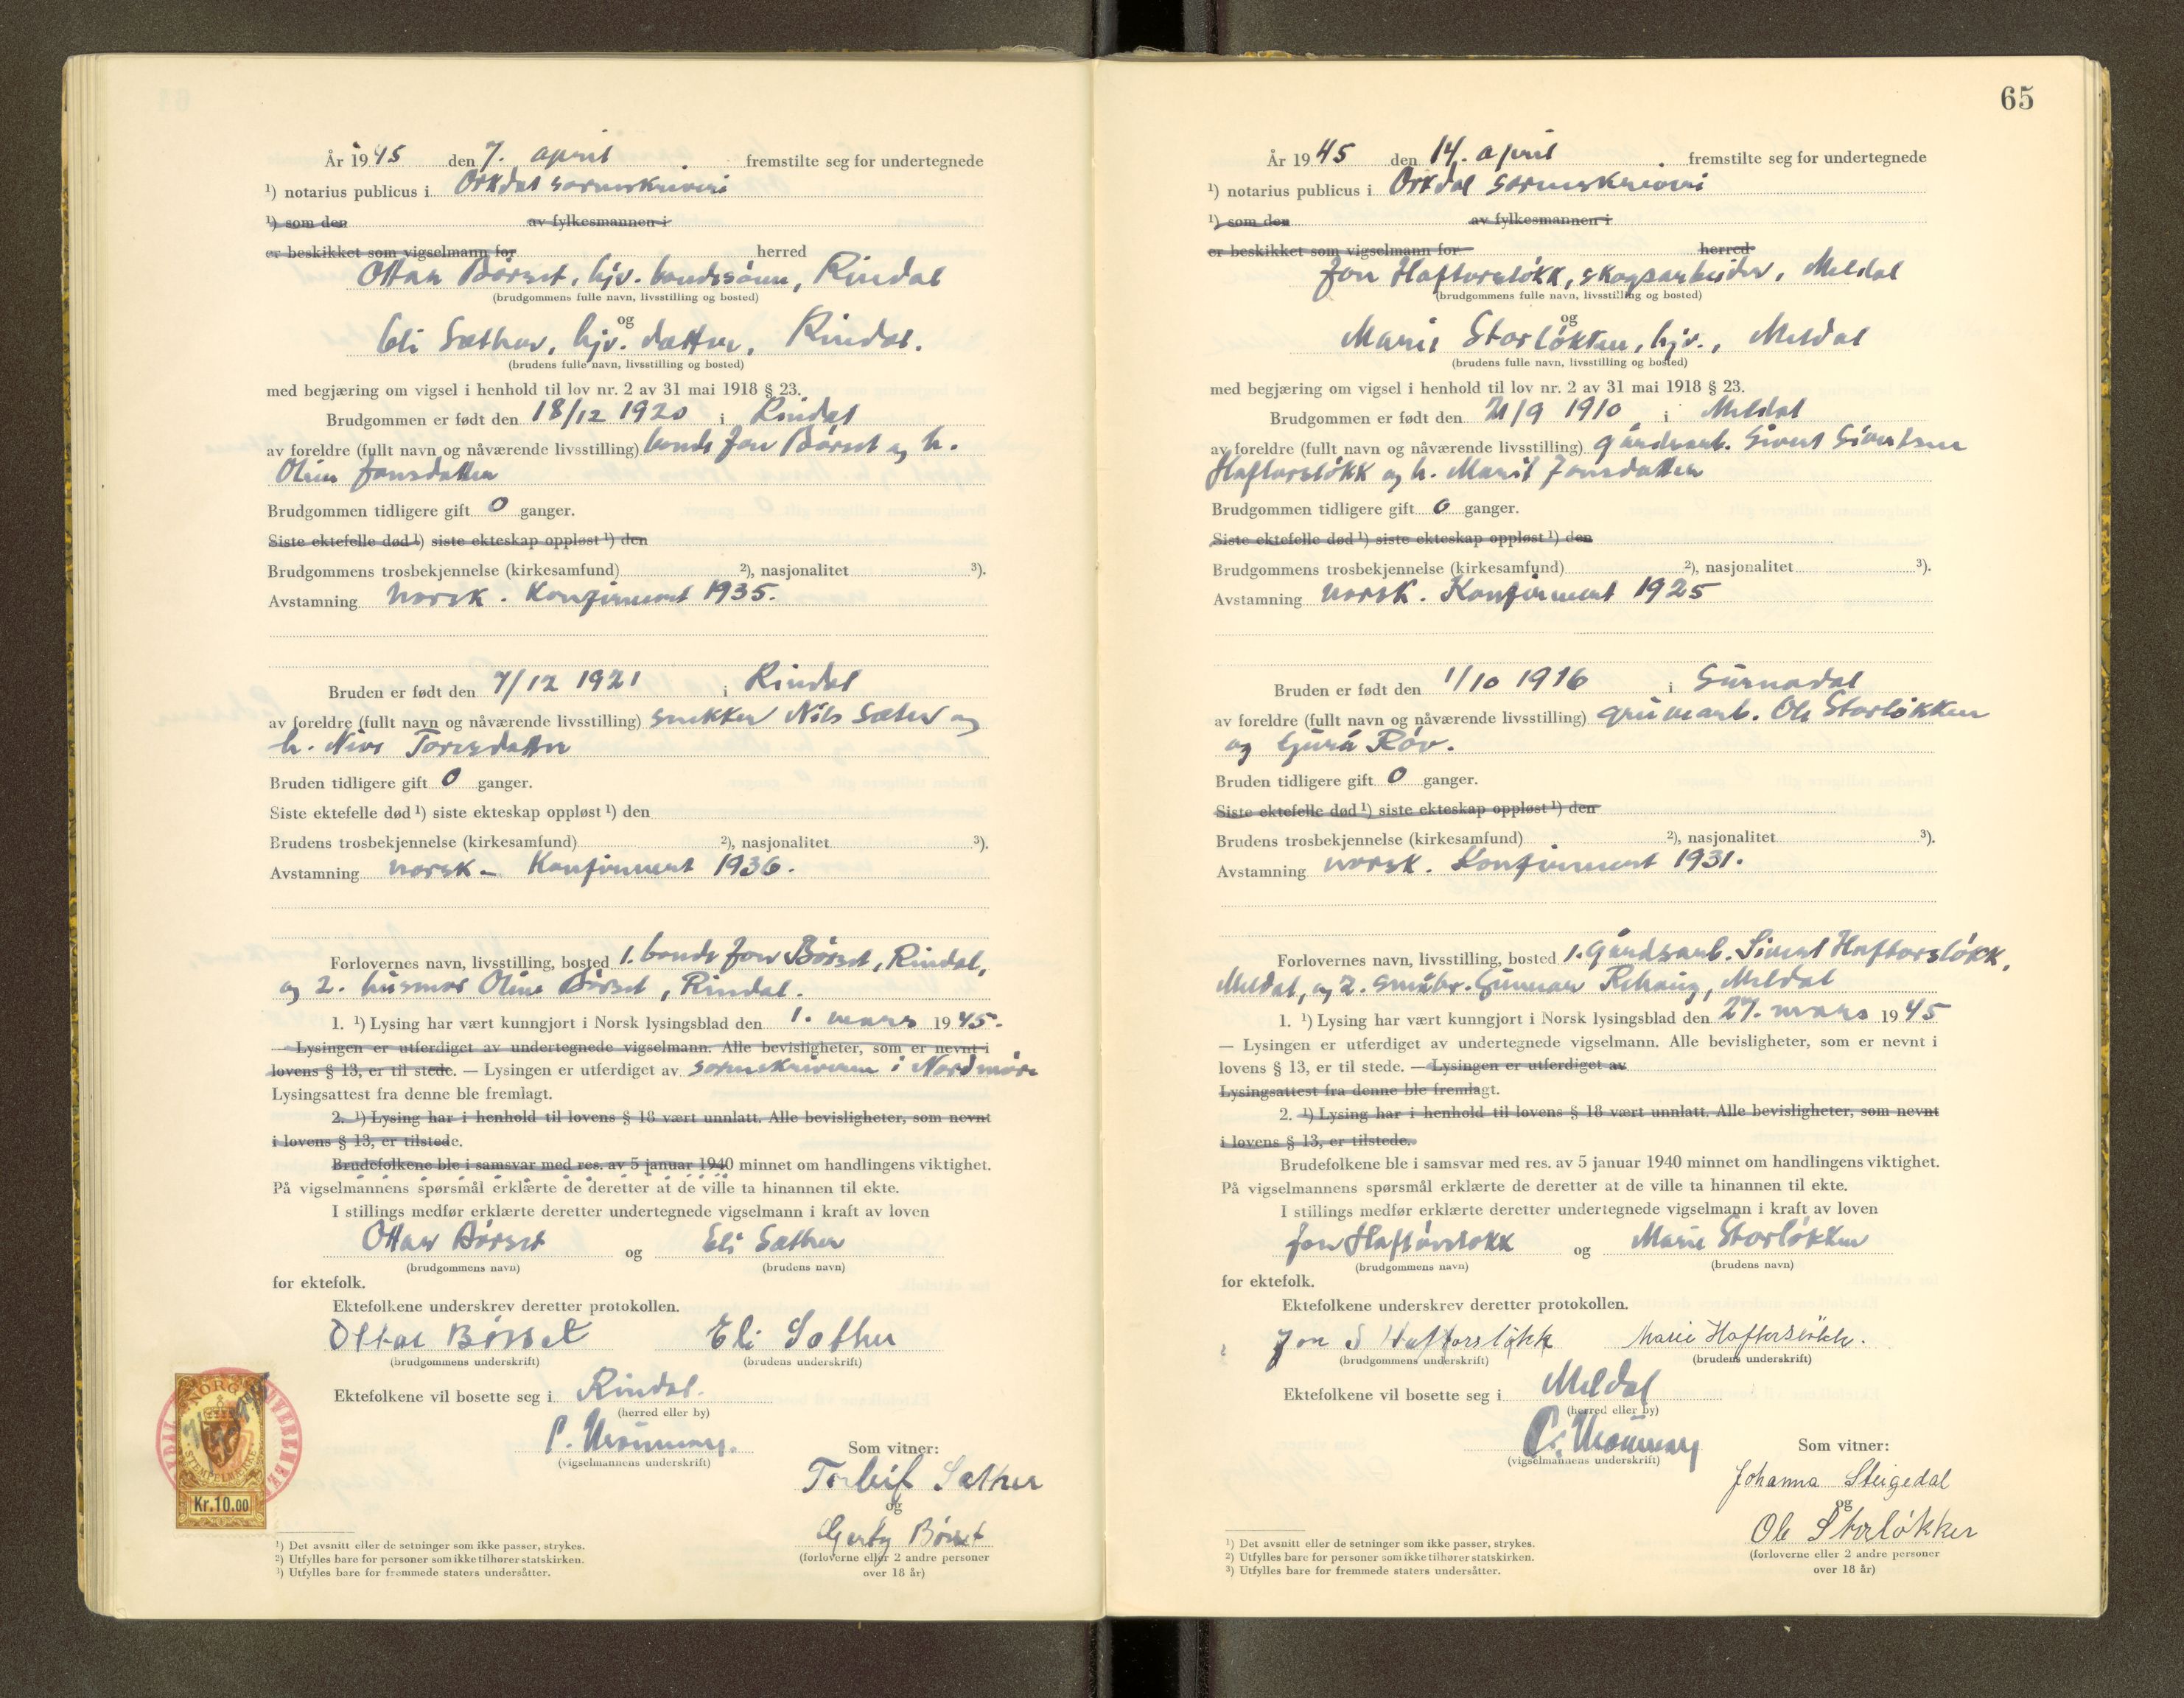 År 1945 den 7. april fremstilte seg for undertegnede
¹) notarius publicus i Orkdal sorenskriveri
¹) som den av fylkesmannen i
er beskikket som vigselmann for herred
Ottar Børset, hjv. bondesønn, Rindal
(brudgommens fulle navn, livsstilling og bosted)
og
Eli Sæther, hjv. datter, Rindal.
(brudens fulle navn, livsstilling og bosted)
med begjæring om vigsel i henhold til lov nr. 2 av 31 mai 1918 § 23.
Brudgommen er født den 18/12 1920 i Rindal
av foreldre (fullt navn og nåværende livsstilling) bonde Jon Børset og h.
Oline Jonsdatter
Brudgommen tidligere gift 0 ganger.
Siste ektefelle død ¹) siste ekteskap oppløst ¹) den
Brudgommens trosbekjennelse (kirkesamfund) ²), nasjonalitet ³).
Avstamning norsk. Konfirmert 1935.
Bruden er født den 7/12 1921 i Rindal
av foreldre (fullt navn og nåværende livsstilling) snekker Nils Sæther og
h. Toresdatter
Bruden tidligere gift 0 ganger.
Siste ektefelle død ¹) siste ekteskap oppløst ¹) den
Brudens trosbekjennelse (kirkesamfund) ²), nasjonalitet ³).
Avstamning norsk - Konfirmert 1936.
Forlovernes navn, livsstilling, bosted 1. bonde Jon Børset, Rindal,
og 2. husmor Oline Børset, Rindal.
1. ¹) Lysing har vært kunngjort i Norsk lysingsblad den 1. mars 1945.
— Lysingen er utferdiget av undertegnede vigselmann. Alle bevisligheter, som er nevnt i
lovens § 13, er til stede. — Lysingen er utferdiget av sorenskriveren i Nordmøre
Lysingsattest fra denne ble fremlagt.
2. ¹) Lysing har i henhold til lovens § 18 vært unnlatt. Alle bevisligheter, som nevnt
i lovens § 13, er tilstede.
Brudefolkene ble i samsvar med res. av 5 januar 1940 minnet om handlingens viktighet.
På vigselmannens spørsmål erklærte de deretter at de ville ta hinannen til ekte.
I stillings medfør erklærte deretter undertegnede vigselmann i kraft av loven
Ottar Børset og Eli Sæther
(brudgommens navn) (brudens navn)
for ektefolk.
Ektefolkene underskrev deretter protokollen.
Ottar Børset Eli Sæther
(brudgommens underskrift) (brudens underskrift)
Ektefolkene vil bosette seg i Rindal.
(herred eller by)
(vigselmannens underskrift)
Som vitner:
Torleif Sæther
og
Børset
(forloverne eller 2 andre personer
over 18 år)
NORGE
STEMPELMERKE
Kr.10.00
¹) Det avsnitt eller de setninger som ikke passer, strykes.
²) Utfylles bare for personer som ikke tilhører statskirken.
³) Utfylles bare for fremmede staters undersåtter.
65
År 1945 den 14. april fremstilte seg for undertegnede
¹) notarius publicus i Orkdal sorenskriveri
¹) som den av fylkesmannen i
er beskikket som vigselmann for herred
Jon Haftorsløkk, skogsarbeider, Meldal
(brudgommens fulle navn, livsstilling og bosted)
og
Marie Storløkken, hjv., Meldal
(brudens fulle navn, livsstilling og bosted)
med begjæring om vigsel i henhold til lov nr. 2 av 31 mai 1918 § 23.
Brudgommen er født den 21/9 1910 i Meldal
av foreldre (fullt navn og nåværende livsstilling) gårdsarb. Sivert Sivertsen
Haftorsløkk og h. Marit Jonsdatter
Brudgommen tidligere gift 0 ganger.
Siste ektefelle død ¹) siste ekteskap oppløst ¹) den
Brudgommens trosbekjennelse (kirkesamfund) ²), nasjonalitet ³).
Avstamning norsk. Konfirmert 1925
Bruden er født den 1/10 1916 i Surnadal
av foreldre (fullt navn og nåværende livsstilling) gruvearb. Ole Storløkken
og Guru Røv.
Bruden tidligere gift 0 ganger.
Siste ektefelle død ¹) siste ekteskap oppløst ¹) den
Brudens trosbekjennelse (kirkesamfund) ²), nasjonalitet ³).
Avstamning norsk. Konfirmert 1931.
Forlovernes navn, livsstilling, bosted 1. gårdsarb. Sivert Haftorsløkk,
Meldal, og 2. småbr. Gunnar Rehaug, Meldal
1. ¹) Lysing har vært kunngjort i Norsk lysingsblad den 27. mars 1945
— Lysingen er utferdiget av undertegnede vigselmann. Alle bevisligheter, som er nevnt i
lovens § 13, er til stede. — Lysingen er utferdiget av
Lysingsattest fra denne ble fremlagt.
2. ¹) Lysing har i henhold til lovens § 18 vært unnlatt. Alle bevisligheter, som nevnt
i lovens § 13, er tilstede.
Brudefolkene ble i samsvar med res. av 5 januar 1940 minnet om handlingens viktighet.
På vigselmannens spørsmål erklærte de deretter at de ville ta hinannen til ekte.
I stillings medfør erklærte deretter undertegnede vigselmann i kraft av loven
Jon Haftorsløkk og Marie Storløkken
(brudgommens navn) (brudens navn)
for ektefolk.
Ektefolkene underskrev deretter protokollen.
Jon S Haftorsløkk Marie Haftorsløkk.
(brudgommens underskrift) (brudens underskrift)
Ektefolkene vil bosette seg i Meldal
(herred eller by)
(vigselmannens underskrift)
Som vitner:
Johanna Steigedal
og
Ole Storløkken
(forloverne eller 2 andre personer
over 18 år)
¹) Det avsnitt eller de setninger som ikke passer, strykes.
²) Utfylles bare for personer som ikke tilhører statskirken.
³) Utfylles bare for fremmede staters undersåtter.